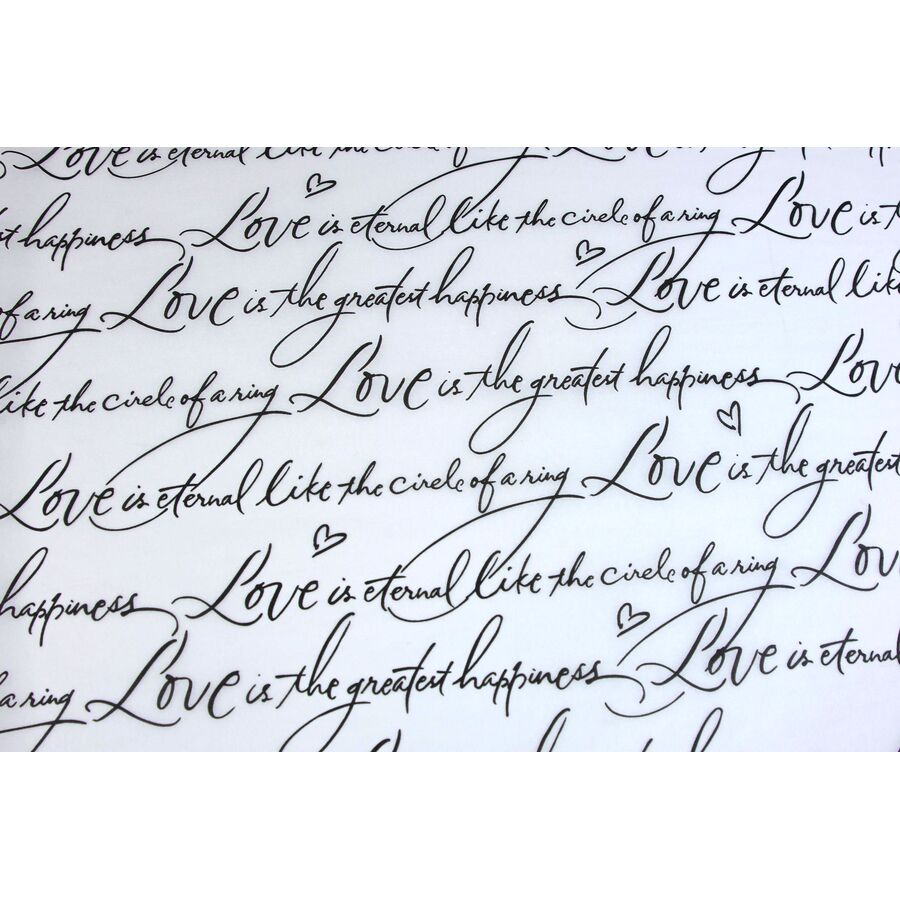 Love is eternal like the circle of a ring Love
st happiness Love is eternal like the circle of a ring Love is t
of a ring Love is the greatest happiness Love is eternal lik
like the circle of a ring Love is the greatest happiness Lov
Love is eternal like the circle of a ring Love is the greatest
happiness Love is eternal like the circle of a ring Lov
a ring Love is the greatest happiness Love is eternal